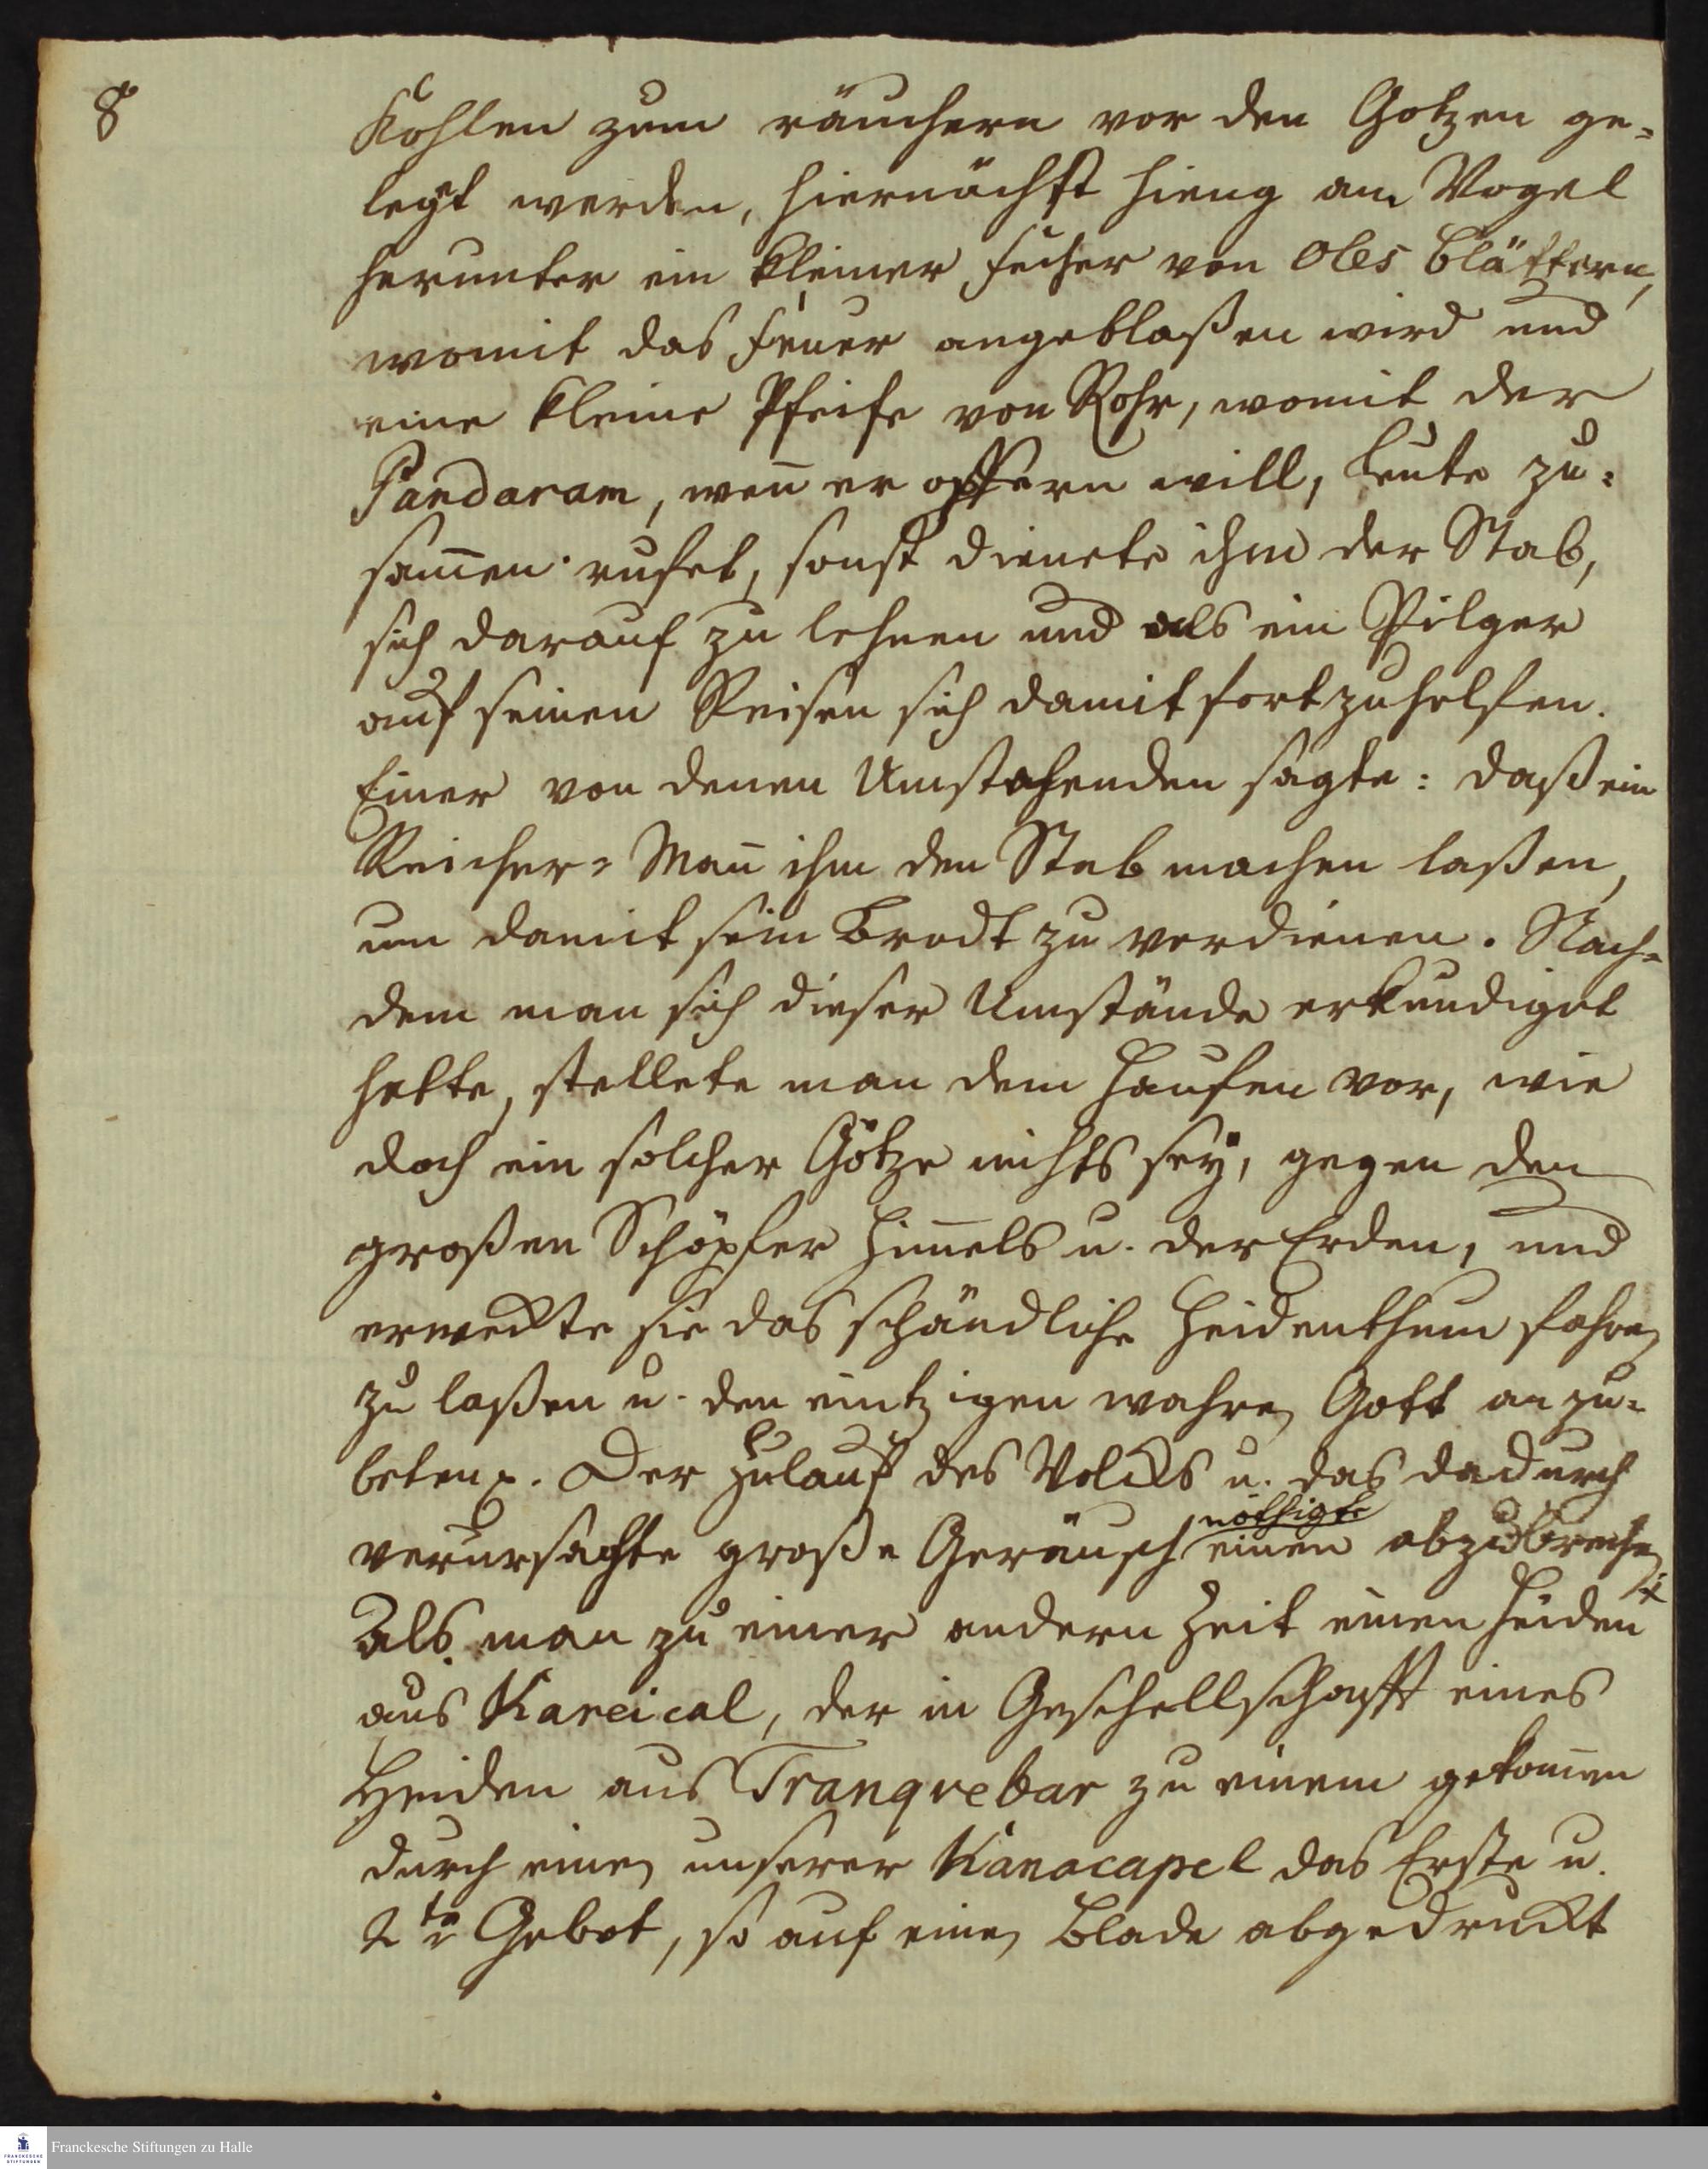 8
Kohlen zum räuchern vor den Gotzen ge-
legt werden, hiernächst hieng am Vogel
herunter ein kleiner fecher von Oles blättern,
womit das feuer angeblaßen wird und
eine kleine Pfeife von Rohr, womit der
Pandaram, weñ er opffern will, leute zu-
sam̄en rufet, sonst dienete ihm der Stab,
sich darauf zu lehnen und als ein Pilger
auf seinen Reisen sich damit fortzuhelfen.
Einer von denen Umstehenden sagte: daß ein
Reicher-Mañ ihm den Stab machen laßen,
um damit sein Brodt zu verdienen. Nach-
dem man sich dieser Umstände erkundiget
hatte, stellete man dem Haufen vor, wie
doch ein solcher Götze nichts seÿ, gegen den
großen Schöpfer Him̄els u. der Erden, und
erweckte sie das schändliche Heidenthum fahren
zu laßen u. den eintzigen wahren Gott anzu-
beten p. Der Zulauf des Volcks u. das dadurch
nöthigte
verursachte große Geräusch einen abzubrechen
Als man zu einer andern Zeit einen Heiden
aus Kareical, der in Geschellschafft eines
Heiden aus Tranqvebar zu einem gekom̄en
durch einen unserer Kanacapel das Erste u.
2te Gebot, so auf einen Blade abgedruckt
Franckesche Stiftungen zu Halle